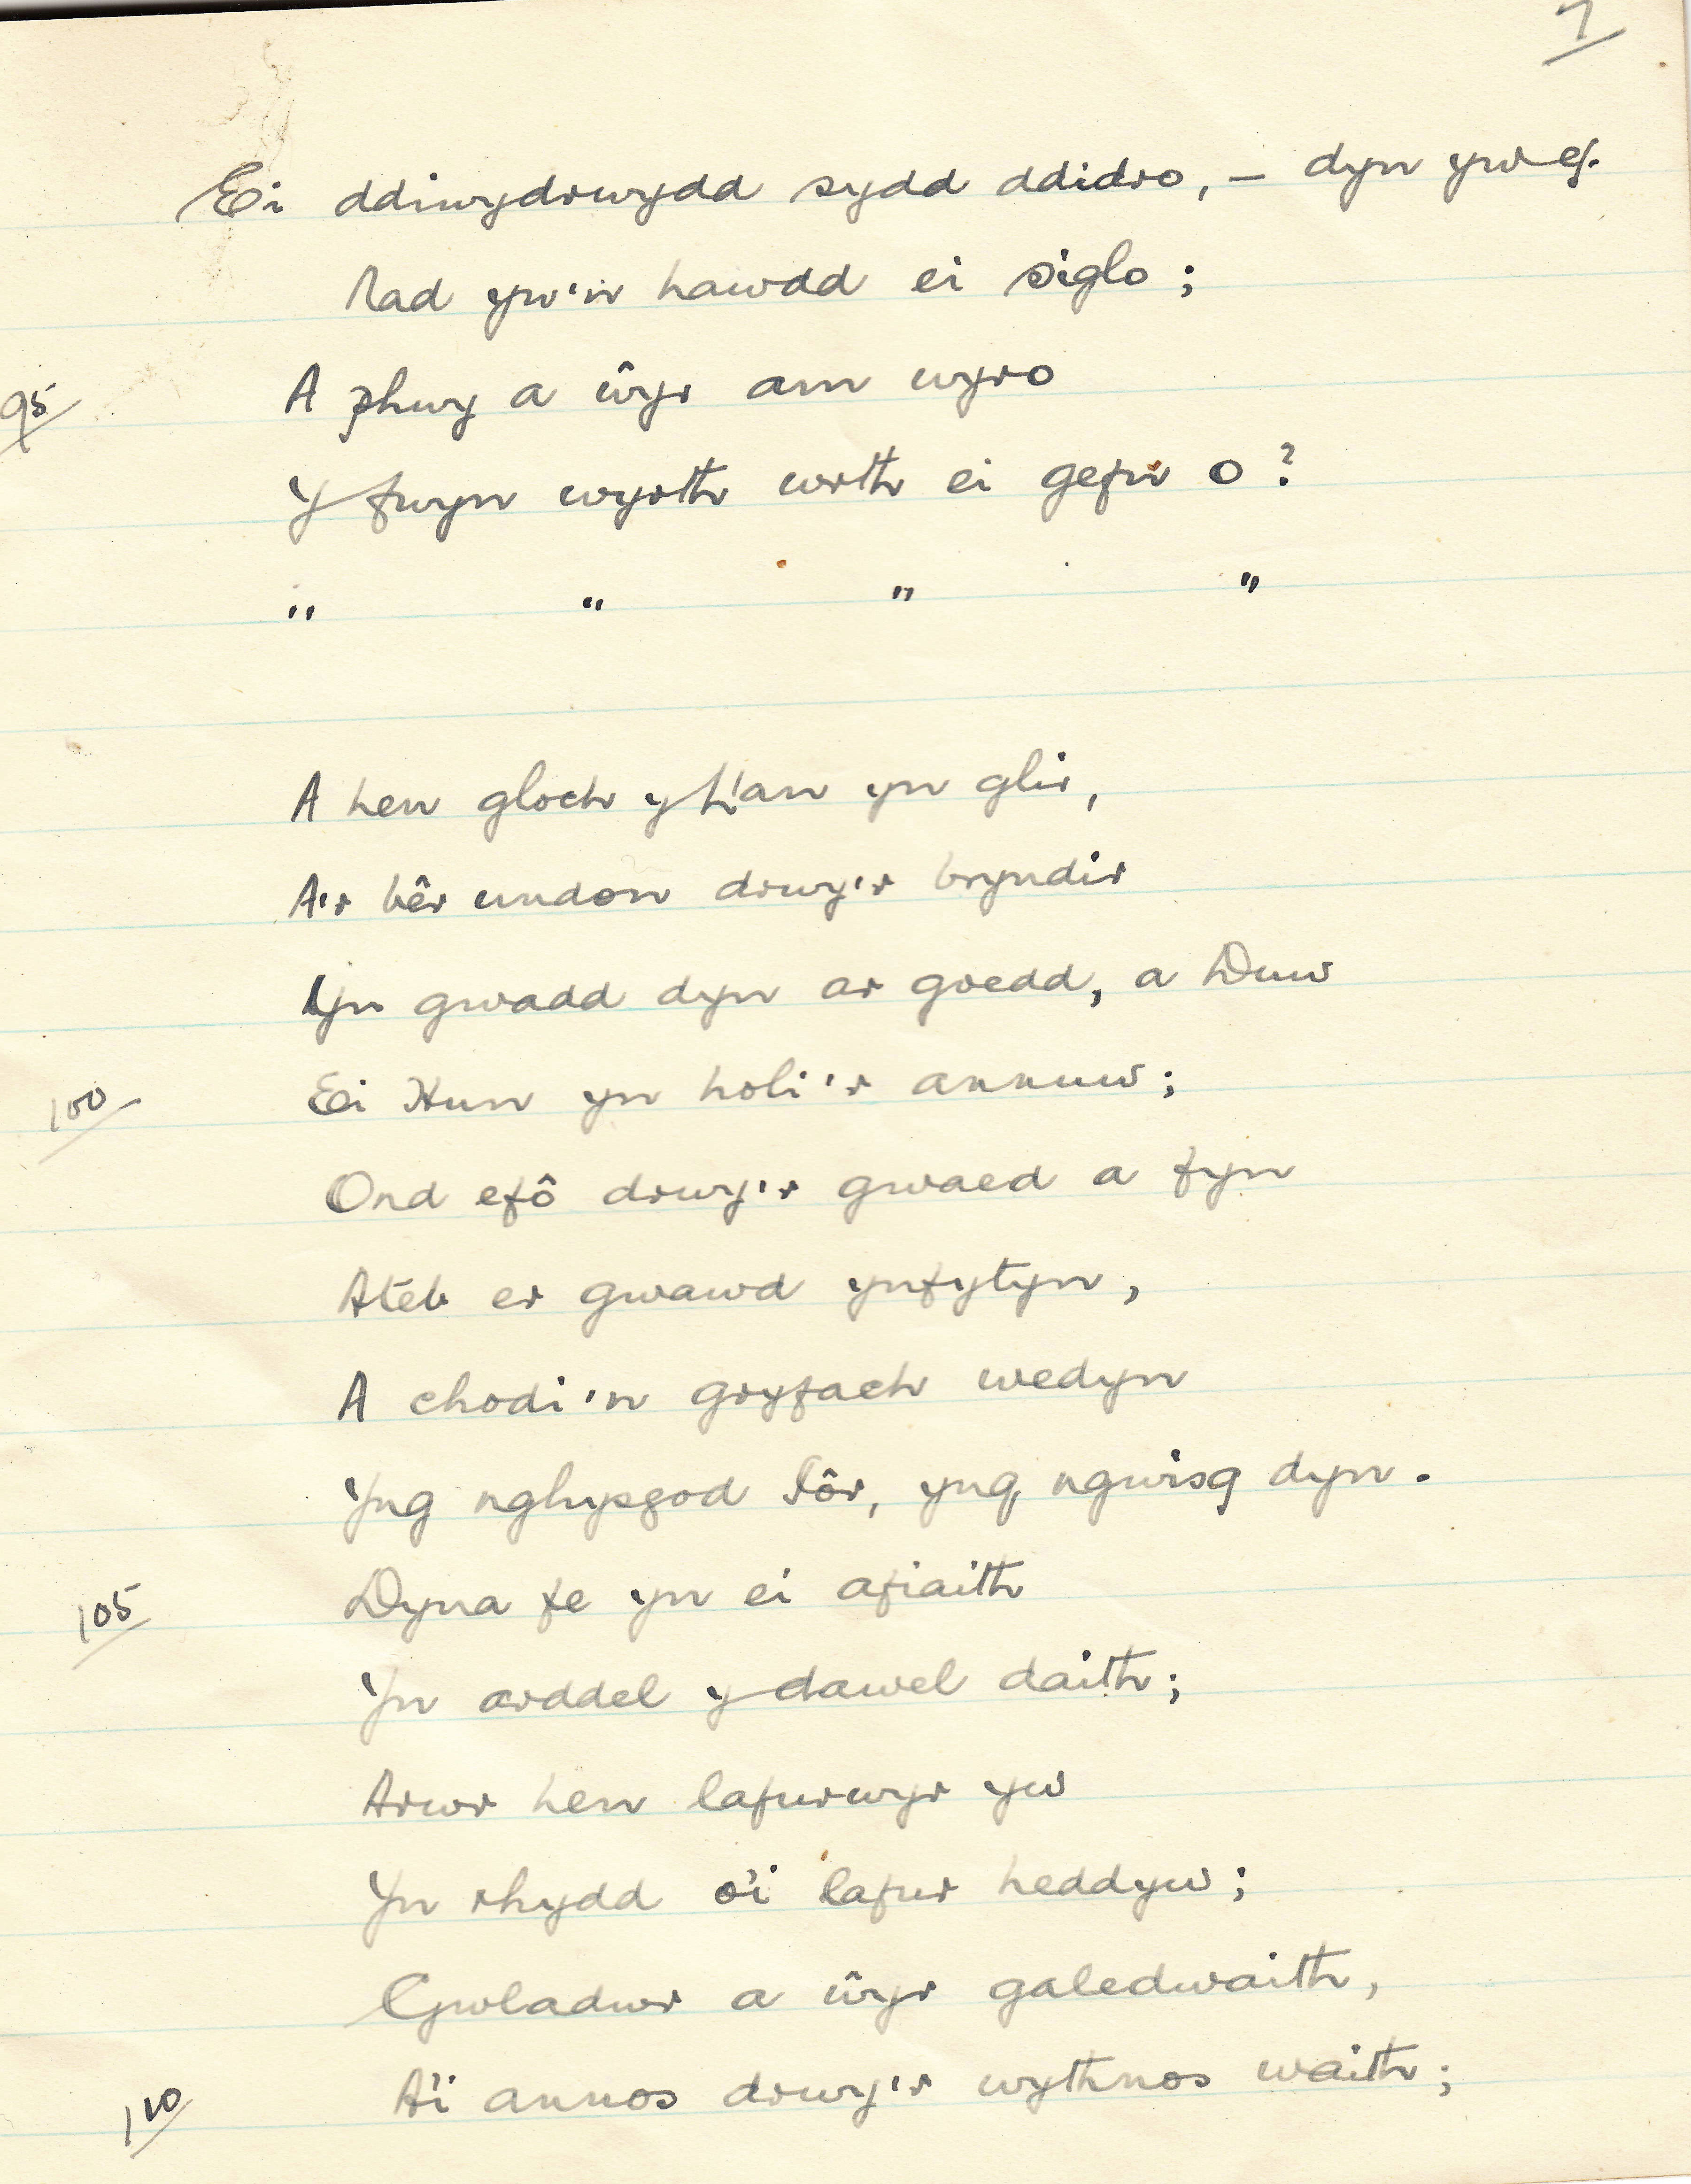 7
Ei ddiwydrwydd sydd ddidro, – dyn yw ef.
Nad yw'n hawdd ei siglo;
95 A phwy a ŵyr am wyro
Y fwyn wyrth wrth ei gefn o?
" " " "
A hen gloch y Llan yn glir,
A'r bêr undon drwy'r bryndir
Yn gwadd dyn ar goedd, a Duw
100 Ei Hun yn holi'r annuw;
Ond efô drwy'r gwaed a fyn
Ateb er gwawd ynfytyn,
A chodi'n gryfach wedyn
Yng nghysgod Iôr, yng ngwisg dyn.
105 Dyna fe yn ei afiaith
Yn arddel y dawel daith;
Arwr hen lafurwyr yw
Yn rhydd o'i lafur heddyw;
Gwladwr a ŵyr galedwaith,
110 A'i annos drwy'r wythnos waith;